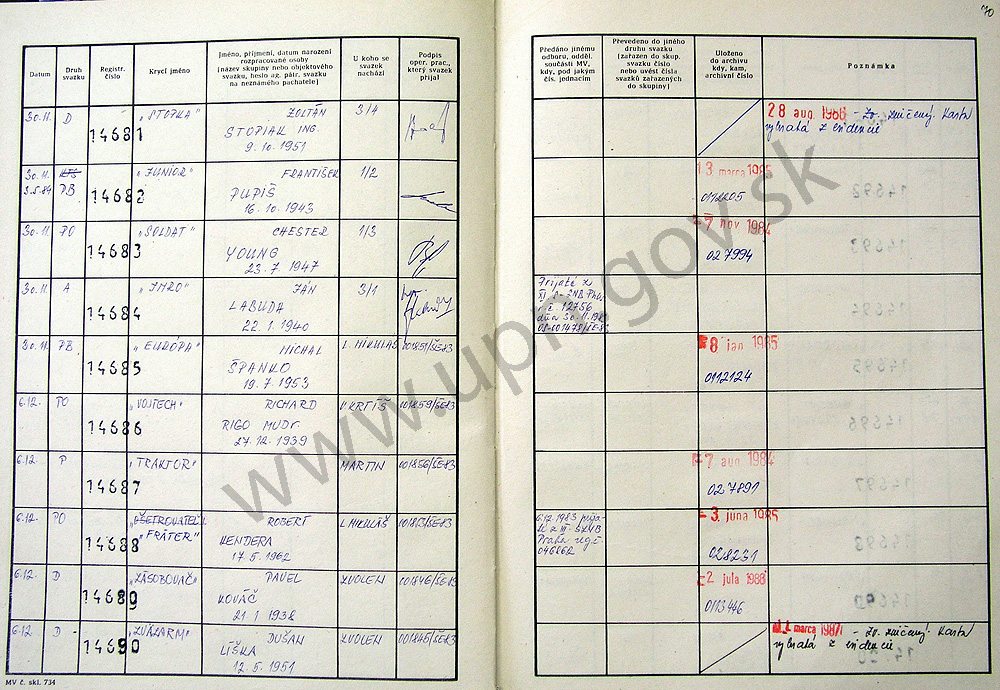 70
Datum
Druh svazku
Registr. číslo
Krycí jméno
Jméno, příjmení, datum narození rozpracované osoby
(název skupiny nebo objektového svazku, heslo ag. pátr. svazku na neznámého pachatele)
U koho se svazek nachází
Podpis oper. prac., který svazek přijal
Předáno jinému odboru, odděl. součásti MV, kdy, pod jakým čís. jednacím
Převedeno do jiného druhu svazku
(zařazen do skup. svazku číslo nebo uvést čísla svazků zařazených do skupiny)
Uloženo do archivu kdy, kam, archivní číslo
Poznámka
30.11. D 14681 "STOPKA" ZOLTÁN 3/4
STOPIAK ING.
9.10.1951
28 aug. 1986 - Zv. zničený. Karta
vybratá z evidencie
30.11. 14682 "JUNIOR" FRANTIŠEK 1/2
3.5.84 PB PUPIŠ
16.10.1943
13 marca 1985
30.11. PO 14683 "SOLDAT" CHESTER 1/3
YOUNG
23.7.1947
-7 nov 1984
027994
30.11. A 14684 "IMRO" JÁN 3/1
LABUDA
22.1.1940
Prijaté z
r.č. 12756
30.11. PB 14685 "EURÓPA" MICHAL L. MIKULÁŠ 001851/ŠE-83
ŠPANKO
19.7.1953
8 jan 1985
0112124
6.12. PO 14686 "VOJTECH" RICHARD V. KRTÍŠ 001859/ŠE-83
RIGO MUDr.
27.12.1939
6.12. P 14687 "TRAKTOR" MARTIN 001856/ŠE-83
-7 aug 1984
027891
6.12. PO 14688 ROBERT L. MIKULÁŠ
"FRÁTER" KENDERA
17.5.1962
6.12.1983
Praha reg.č.
046662
-3. júna 1985
028231
6.12. D 14689 "ZÁSOBOVAČ" PAVEL ZVOLEN 001846/ŠE-83
KOVÁČ
21.1.1938
-2 júla 1986
0113446
6.12. D 14690 "ZVÄZARM" DUŠAN ZVOLEN 001845/ŠE-83
LÍŠKA
12.5.1951
marca 1987 - Zv. zničený. Karta
vybratá z evidencie
MV č. skl. 734
www.upn.gov.sk